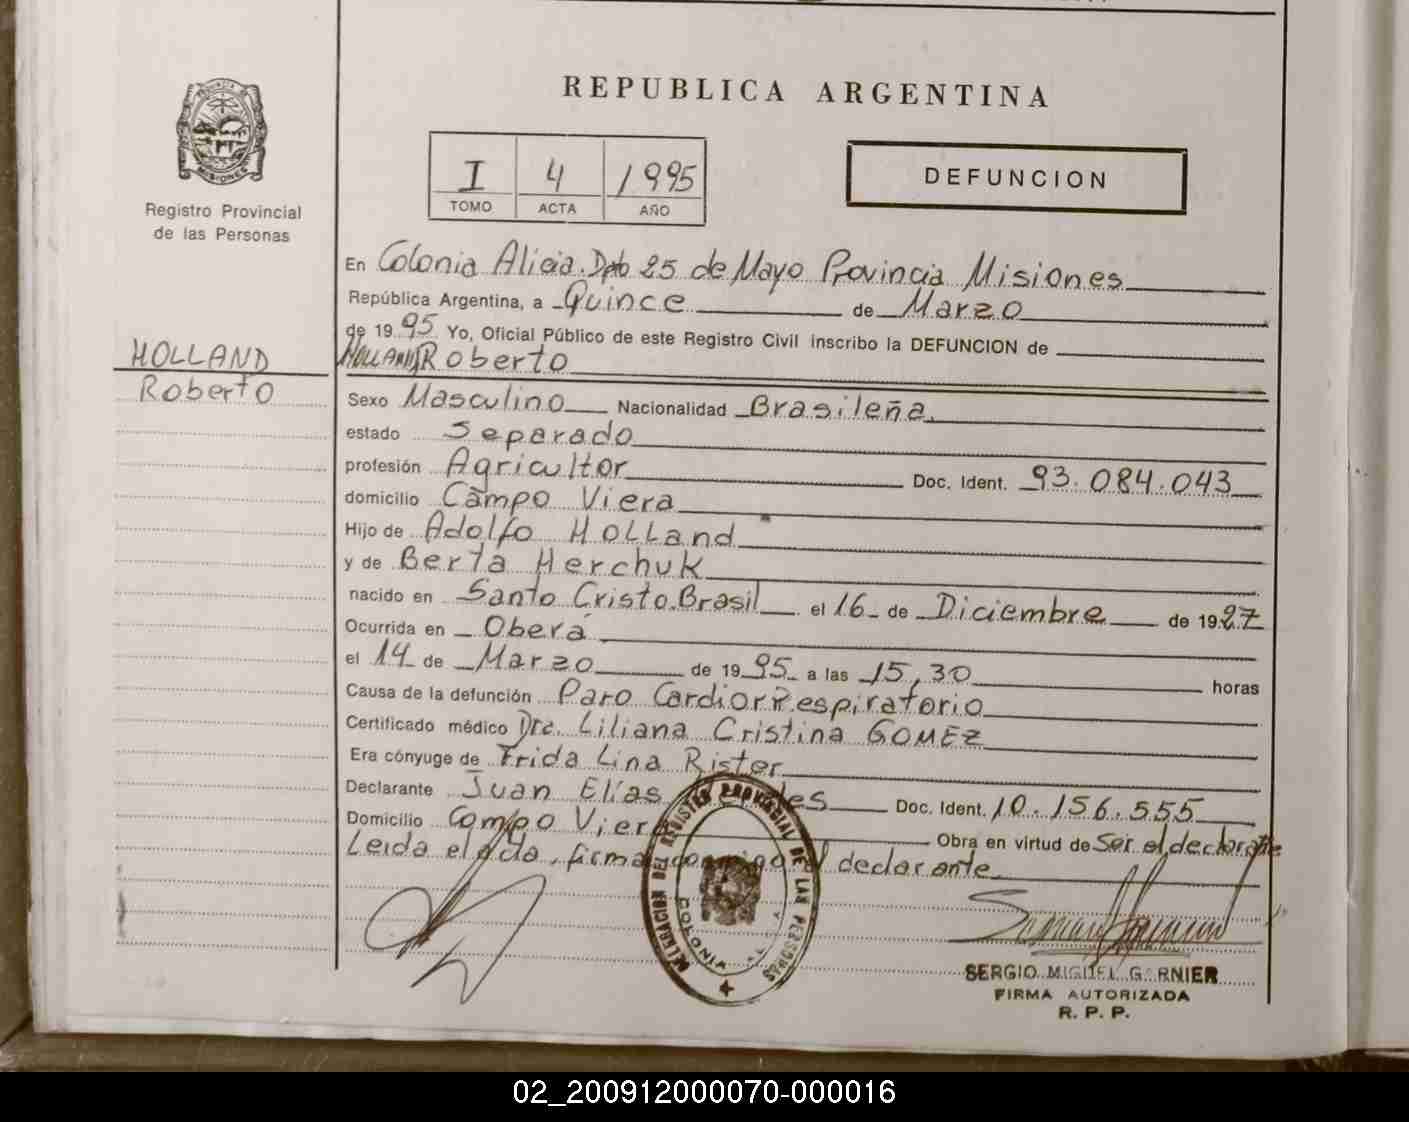 REPUBLICA ARGENTINA
I 4 1995
TOMO ACTA AÑO
DEFUNCION
PROVINCIA DE MISIONES
Registro Provincial
de las Personas
HOLLAND
Roberto
En Colonia Alicia. Dpto 25 de Mayo Provincia Misiones
República Argentina, a Quince de Marzo
de 1995 Yo, Oficial Público de este Registro Civil inscribo la DEFUNCION de
HOLLAND Roberto
Sexo Masculino Nacionalidad Brasileña
estado Separado
profesión Agricultor Doc. Ident. 93.084.043
domicilio Campo Viera
Hijo de Adolfo HOLLand
y de Berta Herchuk
nacido en Santo Cristo.Brasil el 16 de Diciembre de 1927
Ocurrida en Oberá
el 14 de Marzo de 1995 a las 15,30 horas
Causa de la defunción Paro CardiorRespiratorio
Certificado médico Dra. Liliana Cristina GOMEZ
Era cónyuge de Frida Lina Rister
Declarante Juan Elías Doc. Ident. 10.156.555
Domicilio Campo Viera Obra en virtud de Ser el declarante
Leida el acta, firma conmigo el declarante
DELEGACION DEL REGISTRO PROVINCIAL DE LAS PERSONAS
COLONIA
SERGIO MIGUEL GARNIER
FIRMA AUTORIZADA
R. P. P.
02_200912000070-000016